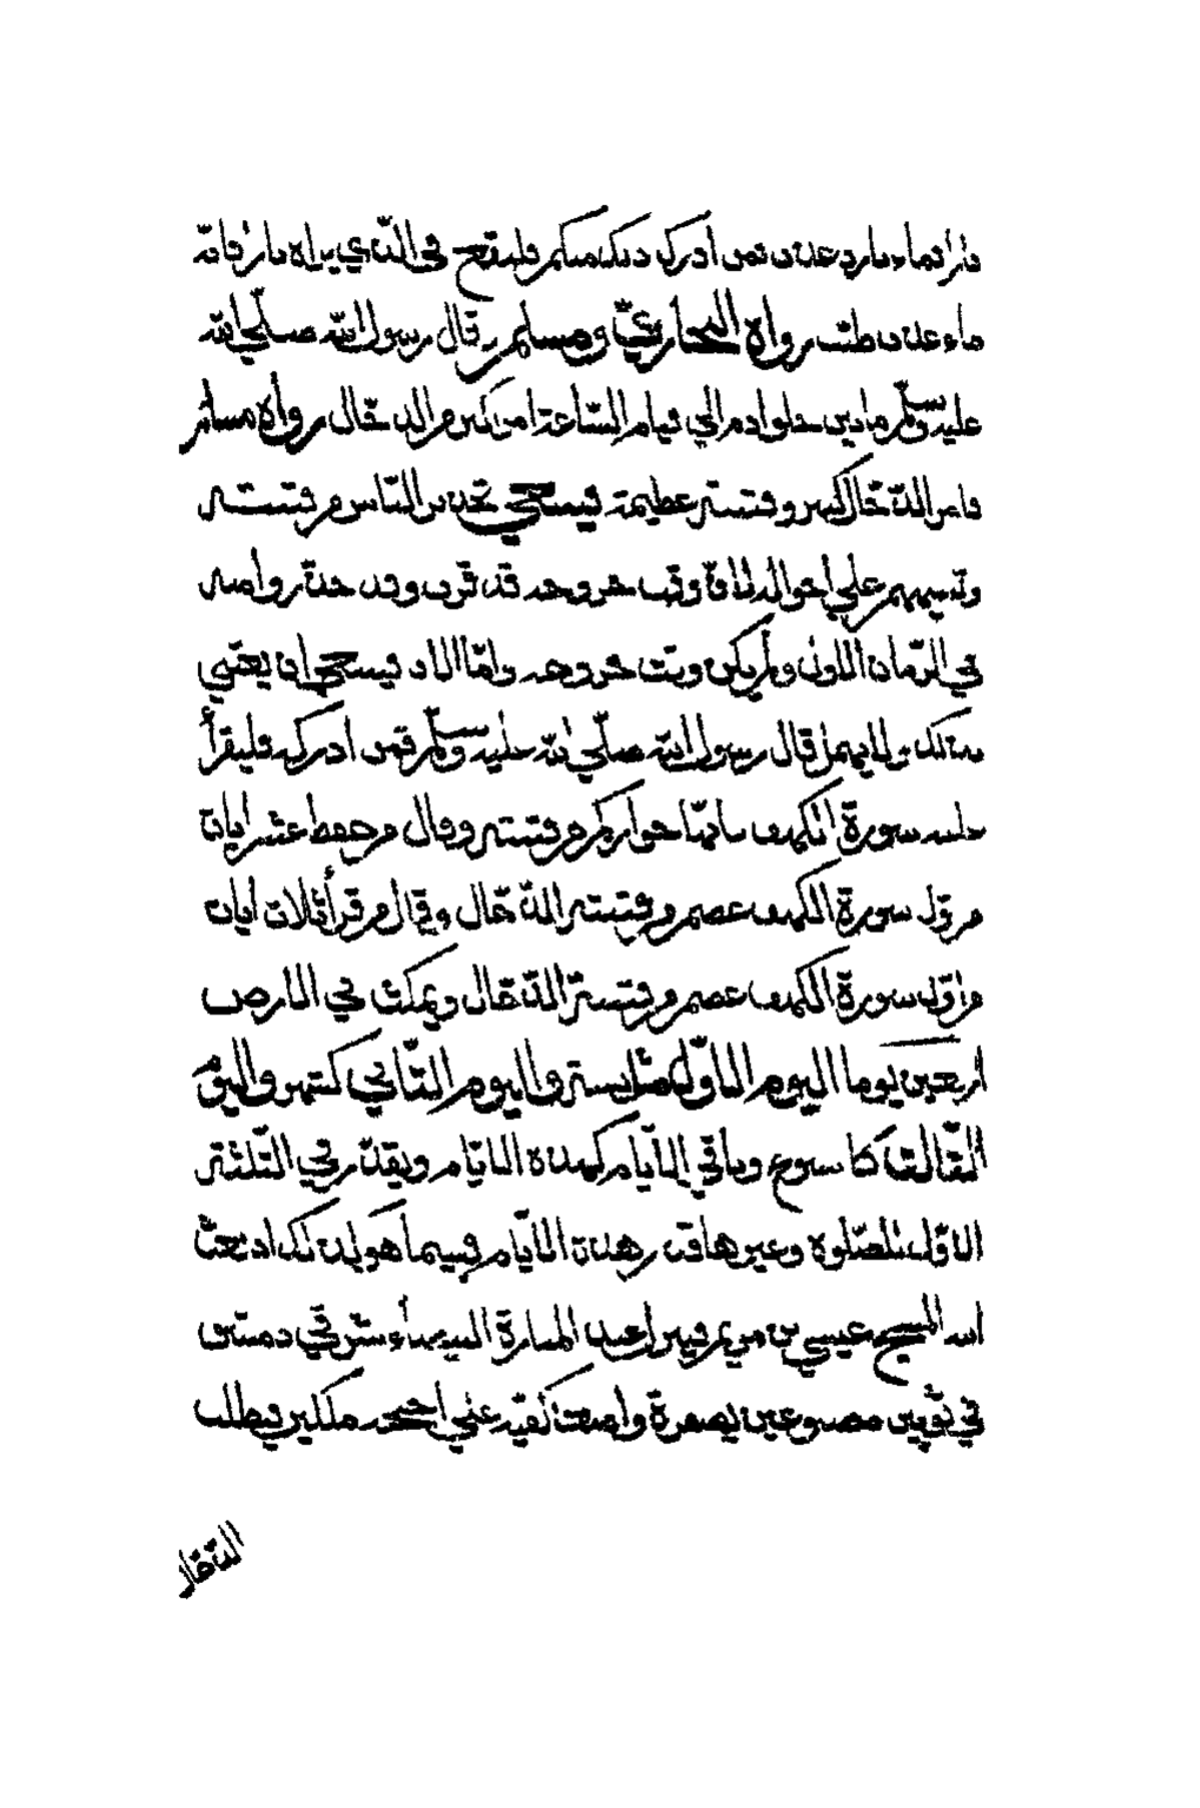 نارا فماء بارد عذب فمن أدرك ذلك منكم فليقع في الذي يراه نارا فإنه
ماء عذب طيب رواه البخاري ومسلم وقال رسول الله صلى الله
عليه وسلم ما بين خلق ادم الي قيام الساعة امر اكبر من الدجال رواه مسلم
فامر الدجال كبير وفتنته عظيمة فينبغي تحذير الناس من فتنته
وتنبيههم علي احواله لا وقت خروجه قد قرب وقد حذروا منه
في الزمان الاول ولم يكن وقت خروجه واما الان فينبغي ان يعتني
بذلك ولا يهمل قال رسول الله صلي الله عليه وسلم فمن ادركه فليقرأ
عليه سورة الكهف فانها جواركم من فتنته وقال من حفظ عشر ايات
من اول سورة الكهف عصم من فتنة الدجال وقال من قرأ ثلاث ايات
من اول سورة الكهف عصم من فتنة الدجال ويمكث في الارض
اربعين يوما اليوم الاول مثل سنة واليوم الثاني كشهر واليوم
الثالث كاسبوع وباقي الايام كهذه الايام ويقدر في الثلثة
الاول للصلوة وغيرها قدر هذه الايام فبينما هو كذلك اذ بعث
الله المسيح عيسي بن مريم فينزل عند المنارة البيضاء شرقي دمشق
في ثوبين مصبوغين بصفرة واضعا كفيه علي اجنحة ملكين فيطلب
الدجال